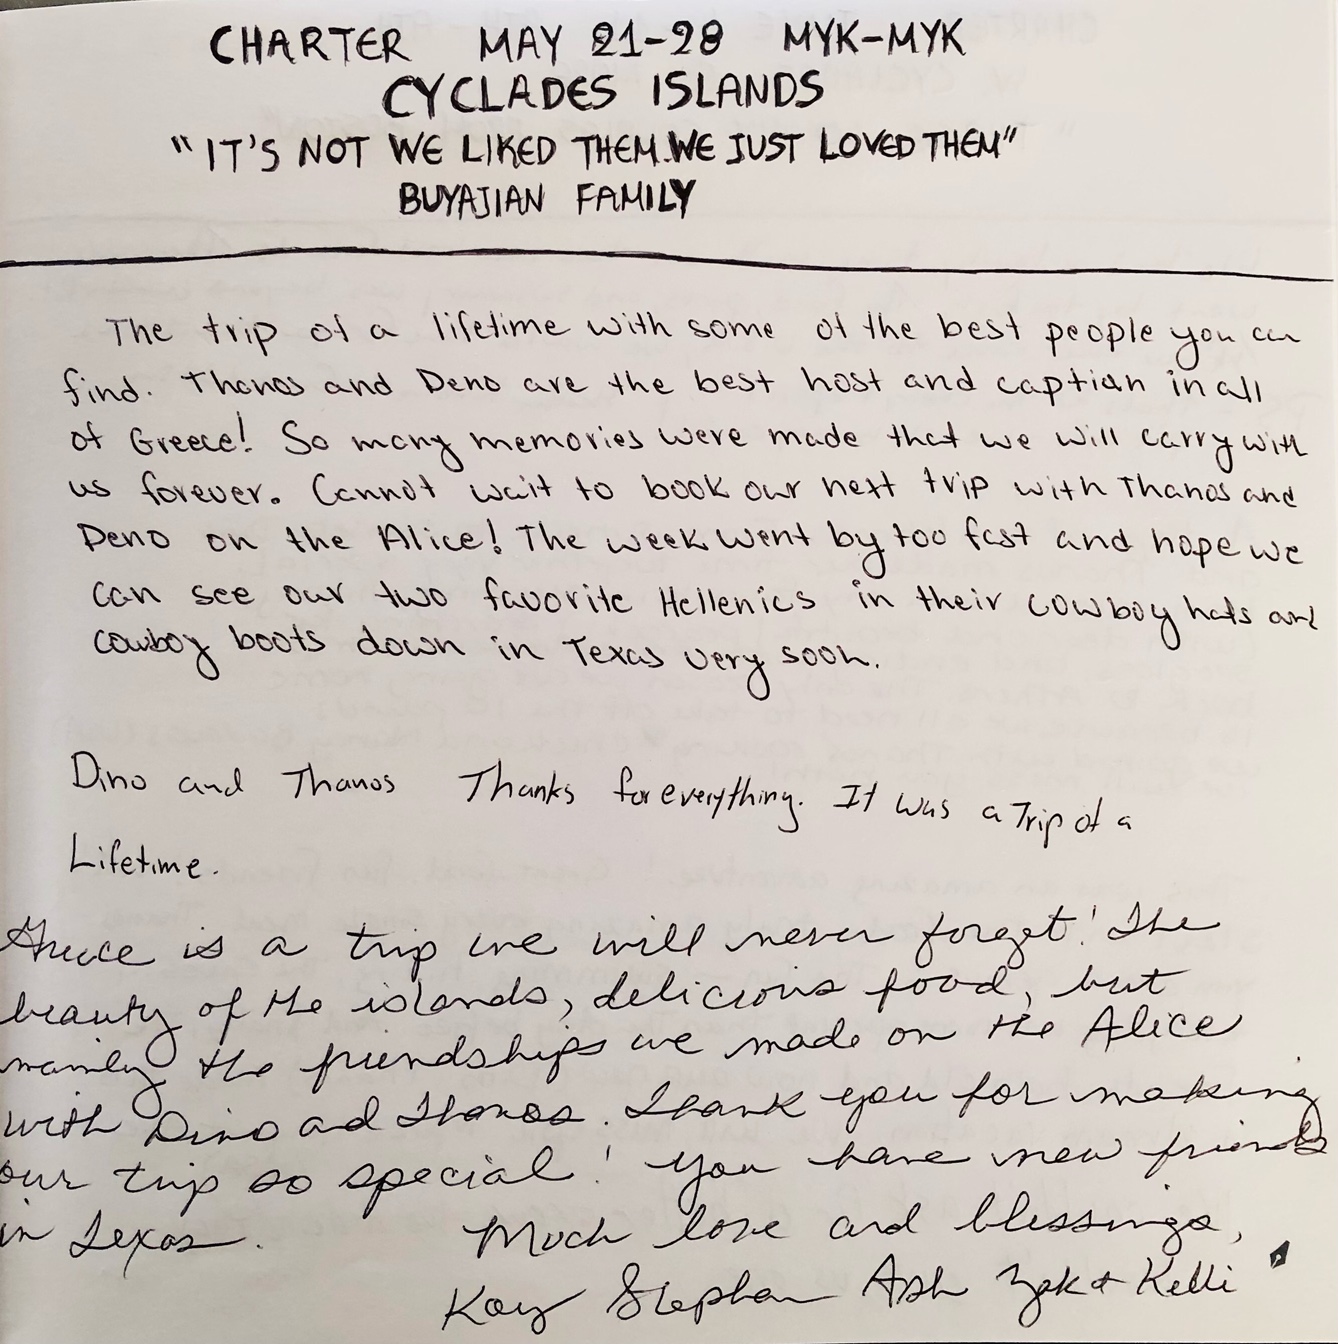 CHARTER MAY 21-28 MYK-MYK
CYCLADES ISLANDS
"IT'S NOT WE LIKED THEM. WE JUST LOVED THEM"
BUYAJIAN FAMILY
The trip of a lifetime with some of the best people you can
find. Thanos and Deno are the best host and captian in all
of Greece! So many memories were made that we will carry with
us forever. Cannot wait to book our next trip with Thanos and
Deno on the Alice! The week went by too fast and hope we
can see our two favorite Hellenics in their cowboy hats and
cowboy boots down in Texas very soon.
Dino and Thanos Thanks for everything. It was a Trip of a
Lifetime.
Greece is a trip we will never forget! The
beauty of the islands, delicious food, but
mainly the friendships we made on the Alice
with Dino ad Thanos. Thank you for making
our trip so special! You have new friends
in Texas.
Much love and blessings,
Kay Stephan Ash + Kelli